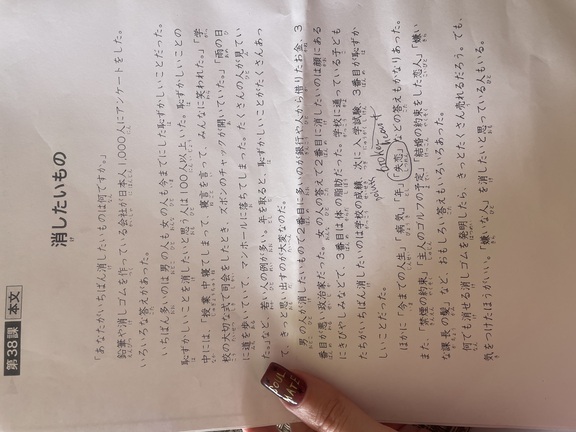 第38課 本文
消したいもの
「あなたがいちばん消したいものは何ですか。」
鉛筆や消しゴムを作っている会社が日本人1,000人にアンケートをした。
いろいろな答えがあった。
いちばん多いのは男の人も女の人も今までにした恥ずかしいことだった。
恥ずかしいことを消したいと思う人は100人以上いた。恥ずかしいことの
中には、「授業中寝てしまって、寝言を言って、みんなに笑われた。」「学
校の大切な式で司会をしたとき、ズボンのチャックが開いていた。」「雨の日
に道を歩いていて、マンホールに落ちてしまった。たくさんの人が見てい
た。」など、若い人の例が多い。年を取ると、恥ずかしいことがたくさんあっ
て、きっと思い出すのが大変なのだ。
男の人が消したいもので2番目に多いのが銀行や人から借りたお金、3
番目が悪い政治家だった。女の人の答えで2番目に消したいのは顔にある
にきびやしみなどで、3番目は体の脂肪だった。学校に通っている子ども
たちがいちばん消したいのは学校の成績、次に入学試験、3番目が恥ずか
しいことだった。
broken heart
ほかに「今までの人生」「病気」「年」「失恋」などの答えもかなりあった。
また、「禁煙の約束」「主人のゴルフの予定」「結婚の約束をした恋人」「嫌い
な課長の髪」など、おもしろい答えもいろいろあった。
何でも消せる消しゴムを発明したら、きっとたくさん売れるだろう。でも、
気をつけたほうがいい。「嫌いな人」を消したいと思っている人もいる。